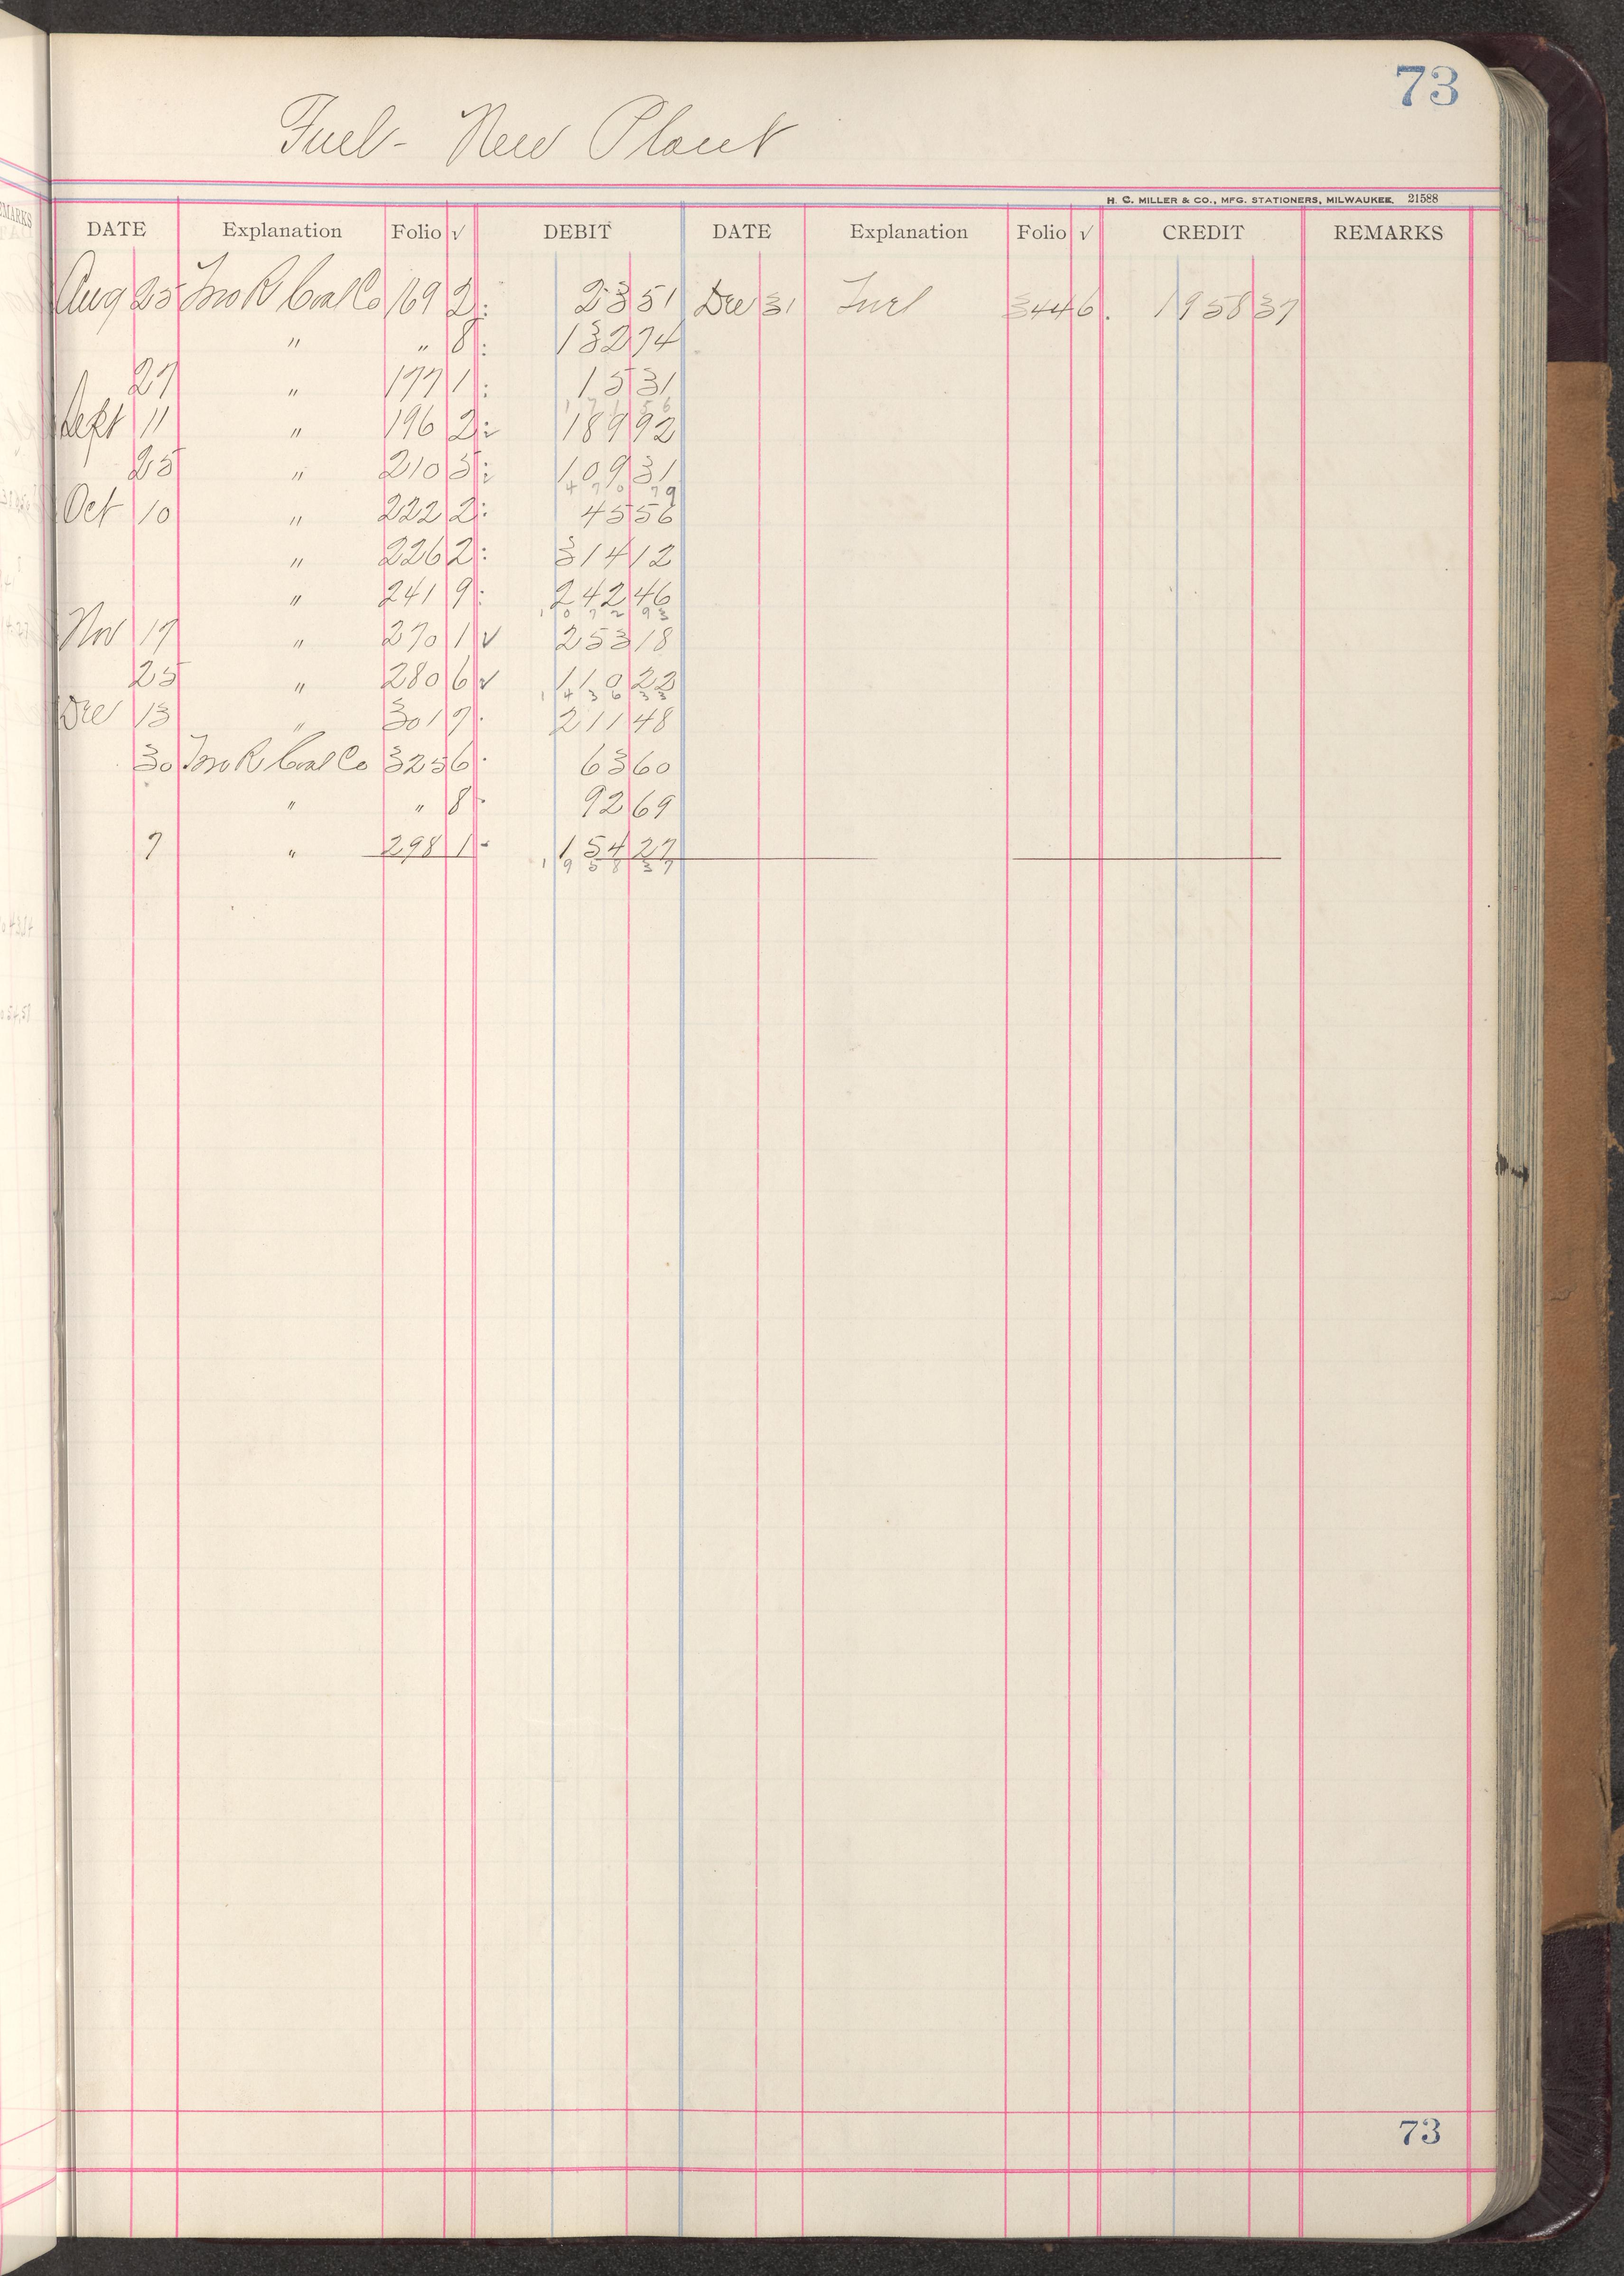 73
Fuel - New Plant
H. C. MILLER & CO., MFG. STATIONERS, MILWAUKEE. 21588
DATE Explanation Folio √ DEBIT DATE Explanation Folio √ CREDIT REMARKS
Aug 25 Jno R Coal Co 169 2 : 23 51 Dec 31 Fuel 344 6 . 1958 37
" " 8 : 132 74
27 " 177 1 : 15 31
171 56
Sept 11 " 196 2 : 189 92
25 " 210 5 : 109 31
470 79
Oct 10 " 222 2 : 45 56
" 226 2 : 314 12
" 241 9 : 242 46
1072 93
Nov 17 " 270 1 √ 253 18
25 " 280 6 √ 110 22
1436 33
Dec 13 " 301 7 . 211 48
30 Jno R Coal Co 325 6 . 63 60
" " 8 . 92 69
7 " 298 1 . 154 27
1958 37
73